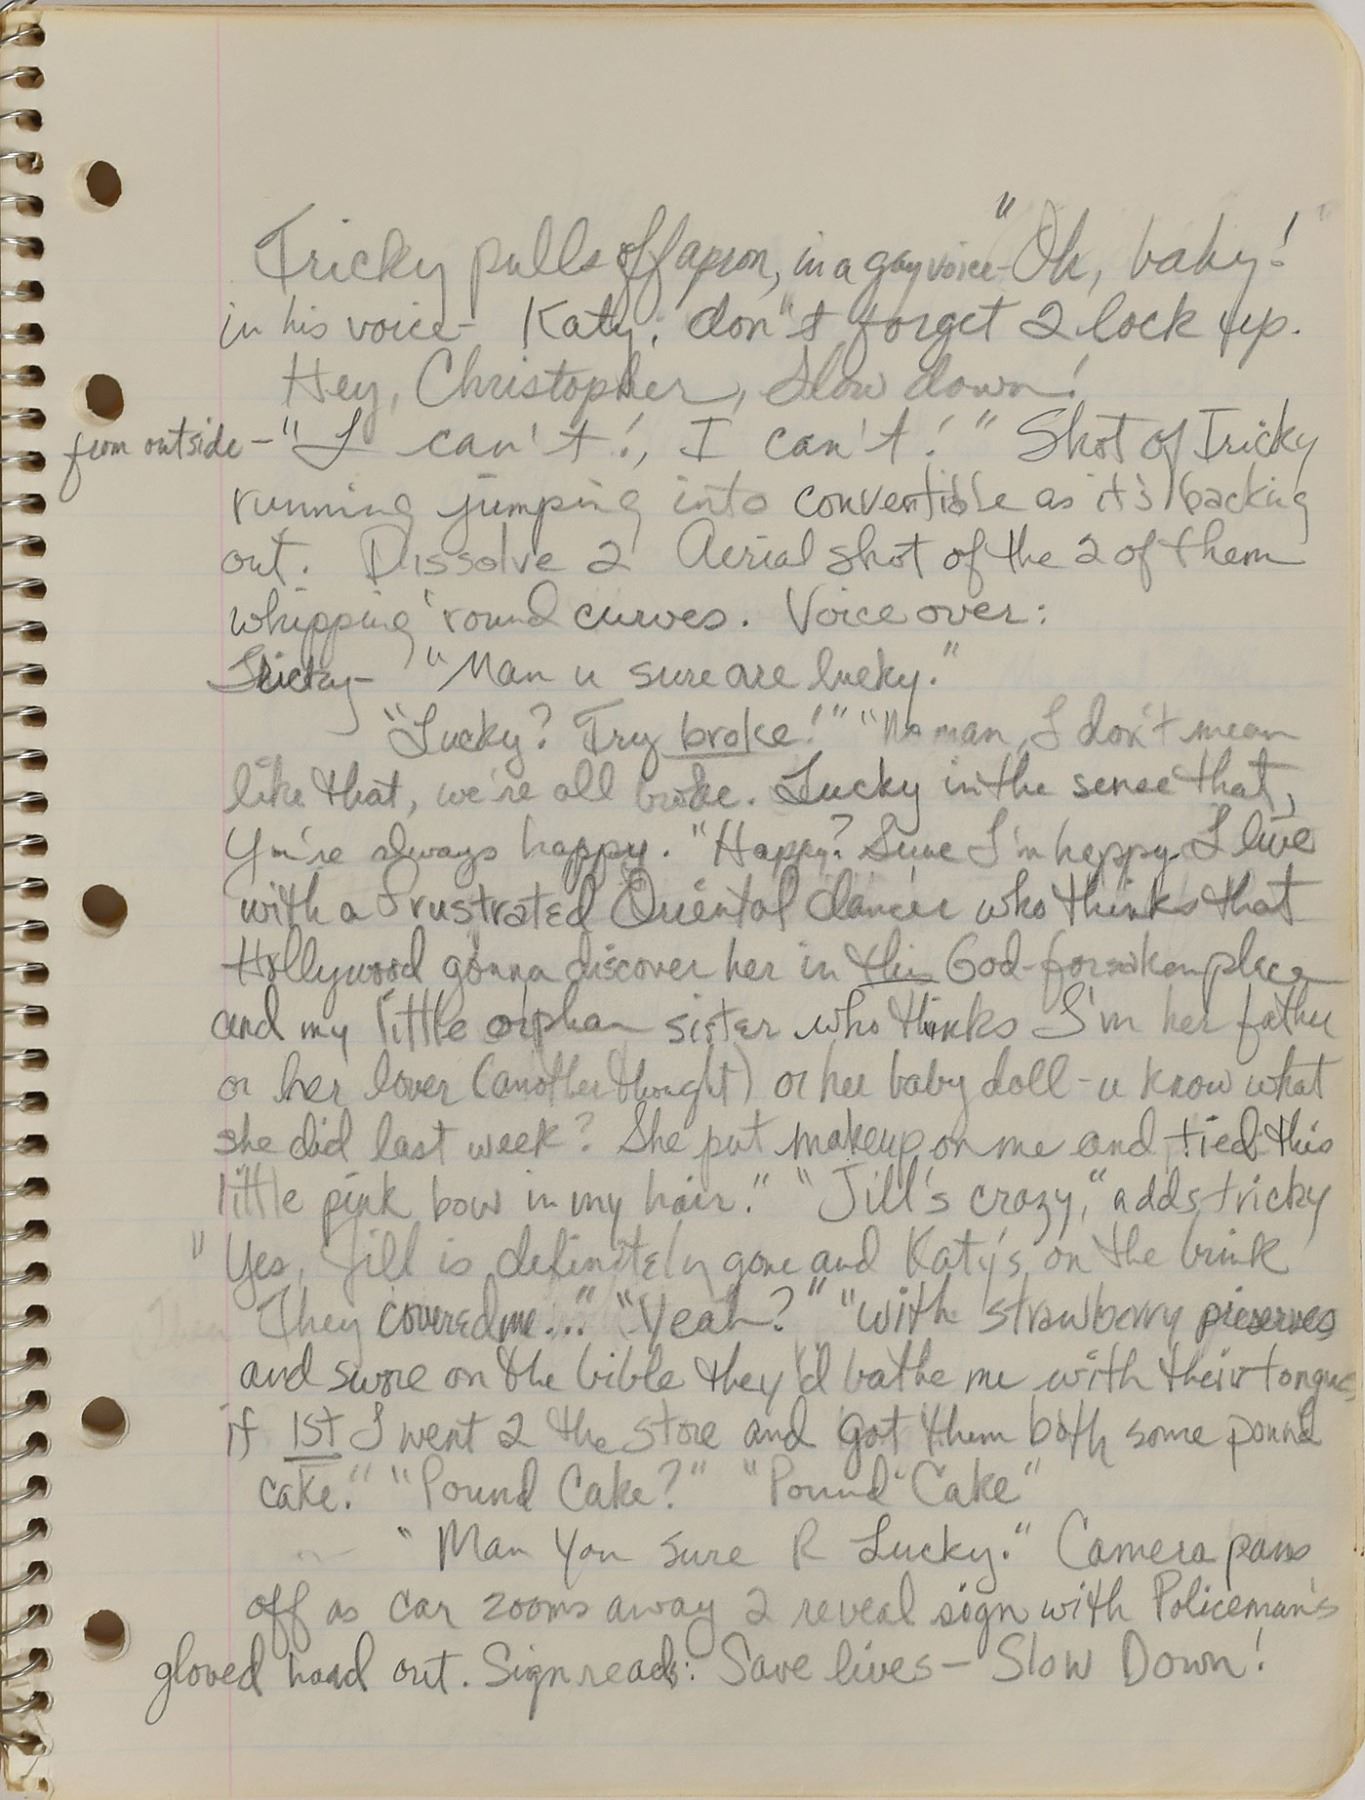 Tricky pulls off apron, in a gay voice - "Oh, baby!"
in his voice - Katy, don't forget 2 lock up.
Hey, Christopher, slow down!
from outside - "I can't!, I can't!" Shot of Tricky
running jumping into convertible as it's backing
out. Dissolve 2 Aerial shot of the 2 of them
whipping 'round curves. Voice over:
Tricky - "Man u sure are lucky."
"Lucky? Try broke!" "No man, I don't mean
like that, we're all broke. Lucky in the sense that,
You're always happy. "Happy? Sure I'm happy. I live
with a frustrated Oriental dancer who thinks that
Hollywood gonna discover her in this God-forsaken place
and my little orphan sister who thinks I'm her father
or her lover (another thought) or her baby doll - u know what
she did last week? She put makeup on me and tied this
little pink bow in my hair." "Jill's crazy," adds tricky
"Yes, Jill is definitely gone and Katy's on the brink
They covered me..." "Yeah?" "with strawberry preserves
and swore on the bible they'd bathe me with their tongues
if 1st I went 2 the store and got them both some pound
cake." "Pound Cake?" "Pound Cake"
"Man You Sure R Lucky." Camera pans
off as car zooms away 2 reveal sign with Policeman's
gloved hand out. Sign reads: Save lives - Slow Down!